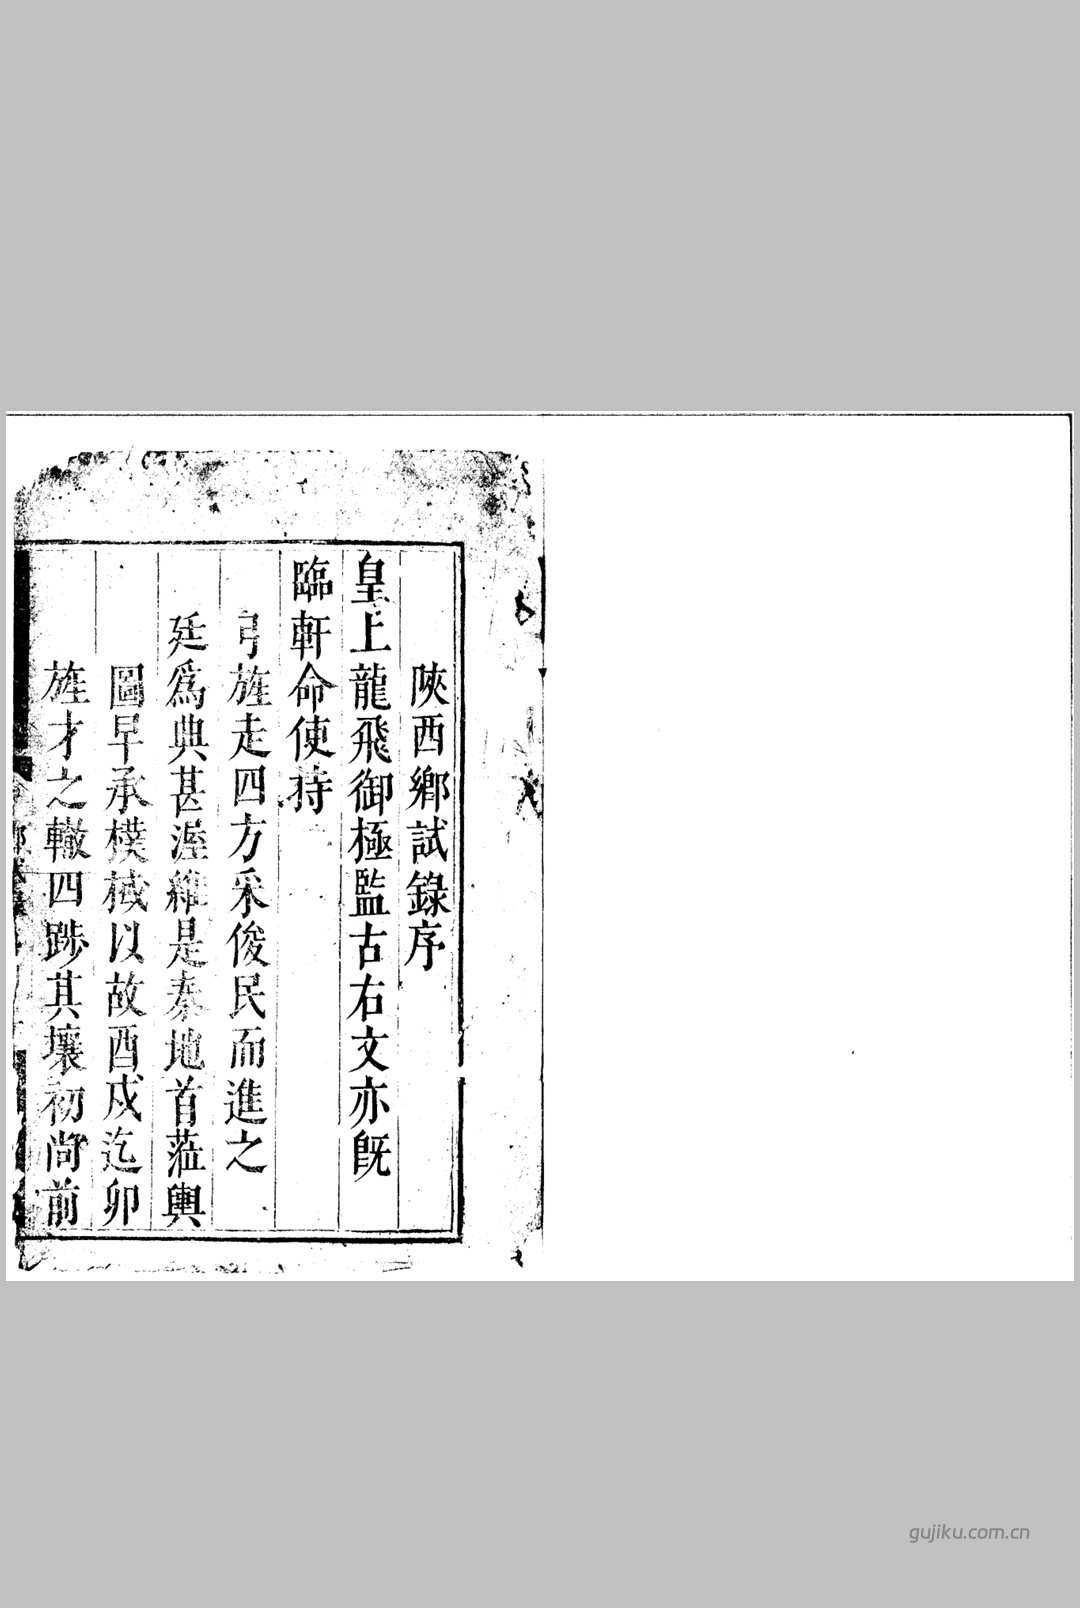 陝西鄉試錄序
皇上龍飛御極監古右文亦旣
臨軒命使持
弓旌走四方采俊民而進之
廷爲典甚渥維是秦地首蒞輿
圖早承樸棫以故酉戍迄卯
旌才之轍四踄其壤初尚前
gujiku.com.cn